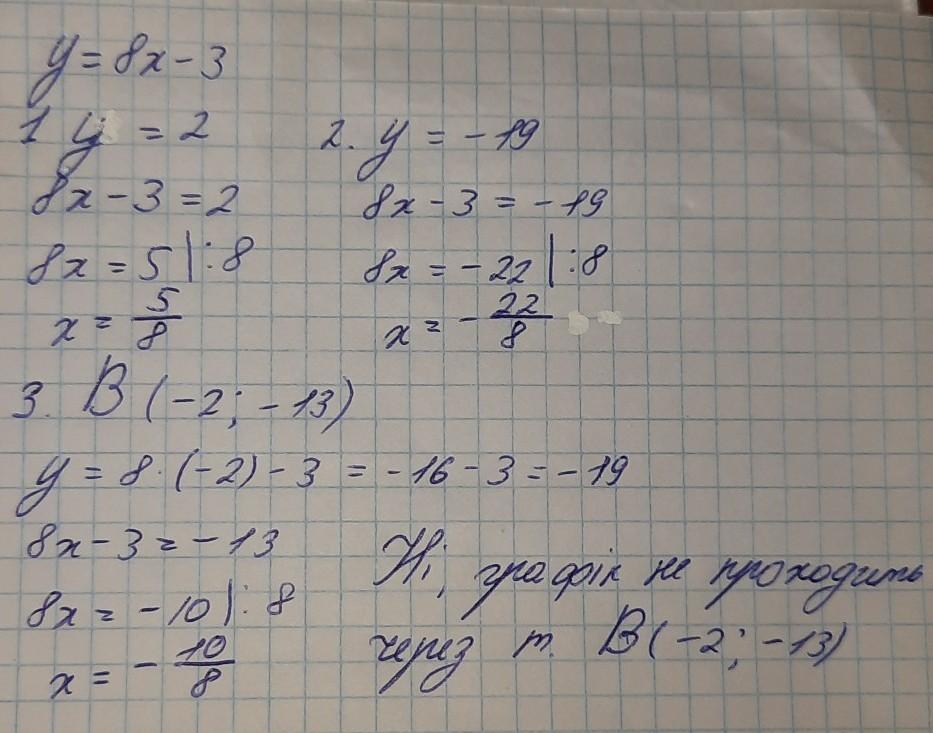 y = 8x - 3
1 y = 2
8x - 3 = 2
8x = 5 | : 8
x = 5/8
2. y = -19
8x - 3 = -19
8x = -22 | : 8
x = - 22/8
3. B (-2; -13)
y = 8 · (-2) - 3 = -16 - 3 = -19
8x - 3 = -13
8x = -10 | : 8
x = - 10/8
Ні, графік не проходить
через т. B (-2; -13)